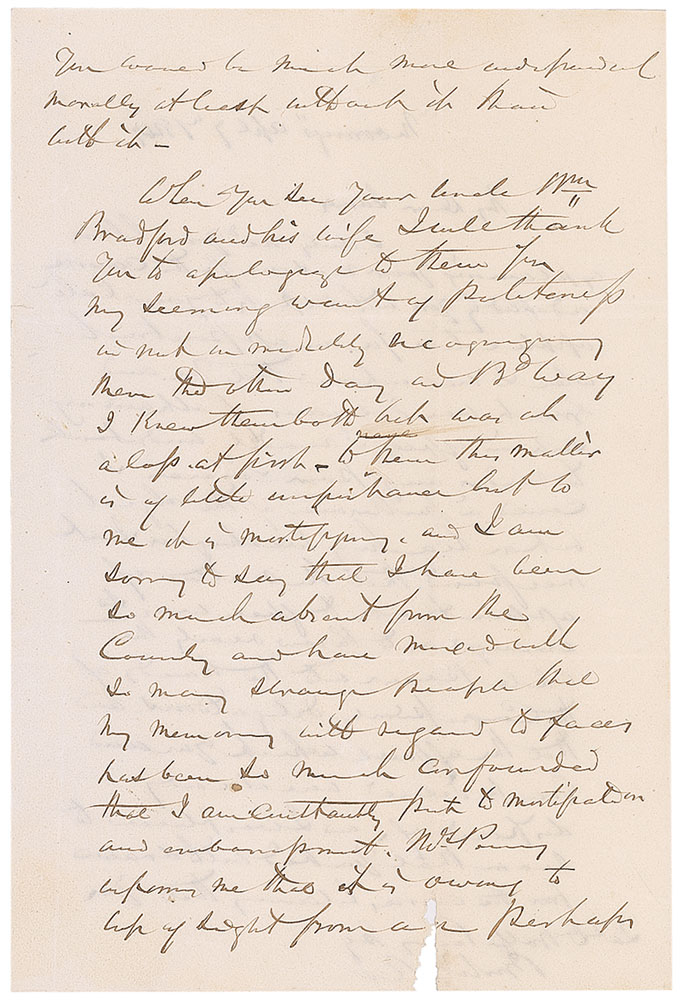 You would be much more independent
morally at least without it than
with it –
When you see your Uncle Wm
Bradford and his wife I will thank
you to apologize to them for
my seeming want of politeness
in not immediately recognizing
them the other day in Bd Way
I knew them both but was at
a loss at first – to name them this matter
is of little importance but to
me it is mortifying, and I am
sorry to say that I have been
so much absent from the
Country and have mixed with
so many strange people that
my memory with regard to faces
has been so much confounded
that I am constantly put to mortification
and embarrassment. Mrs Perry
informs me that it is owing to
loss of sight from age Perhaps